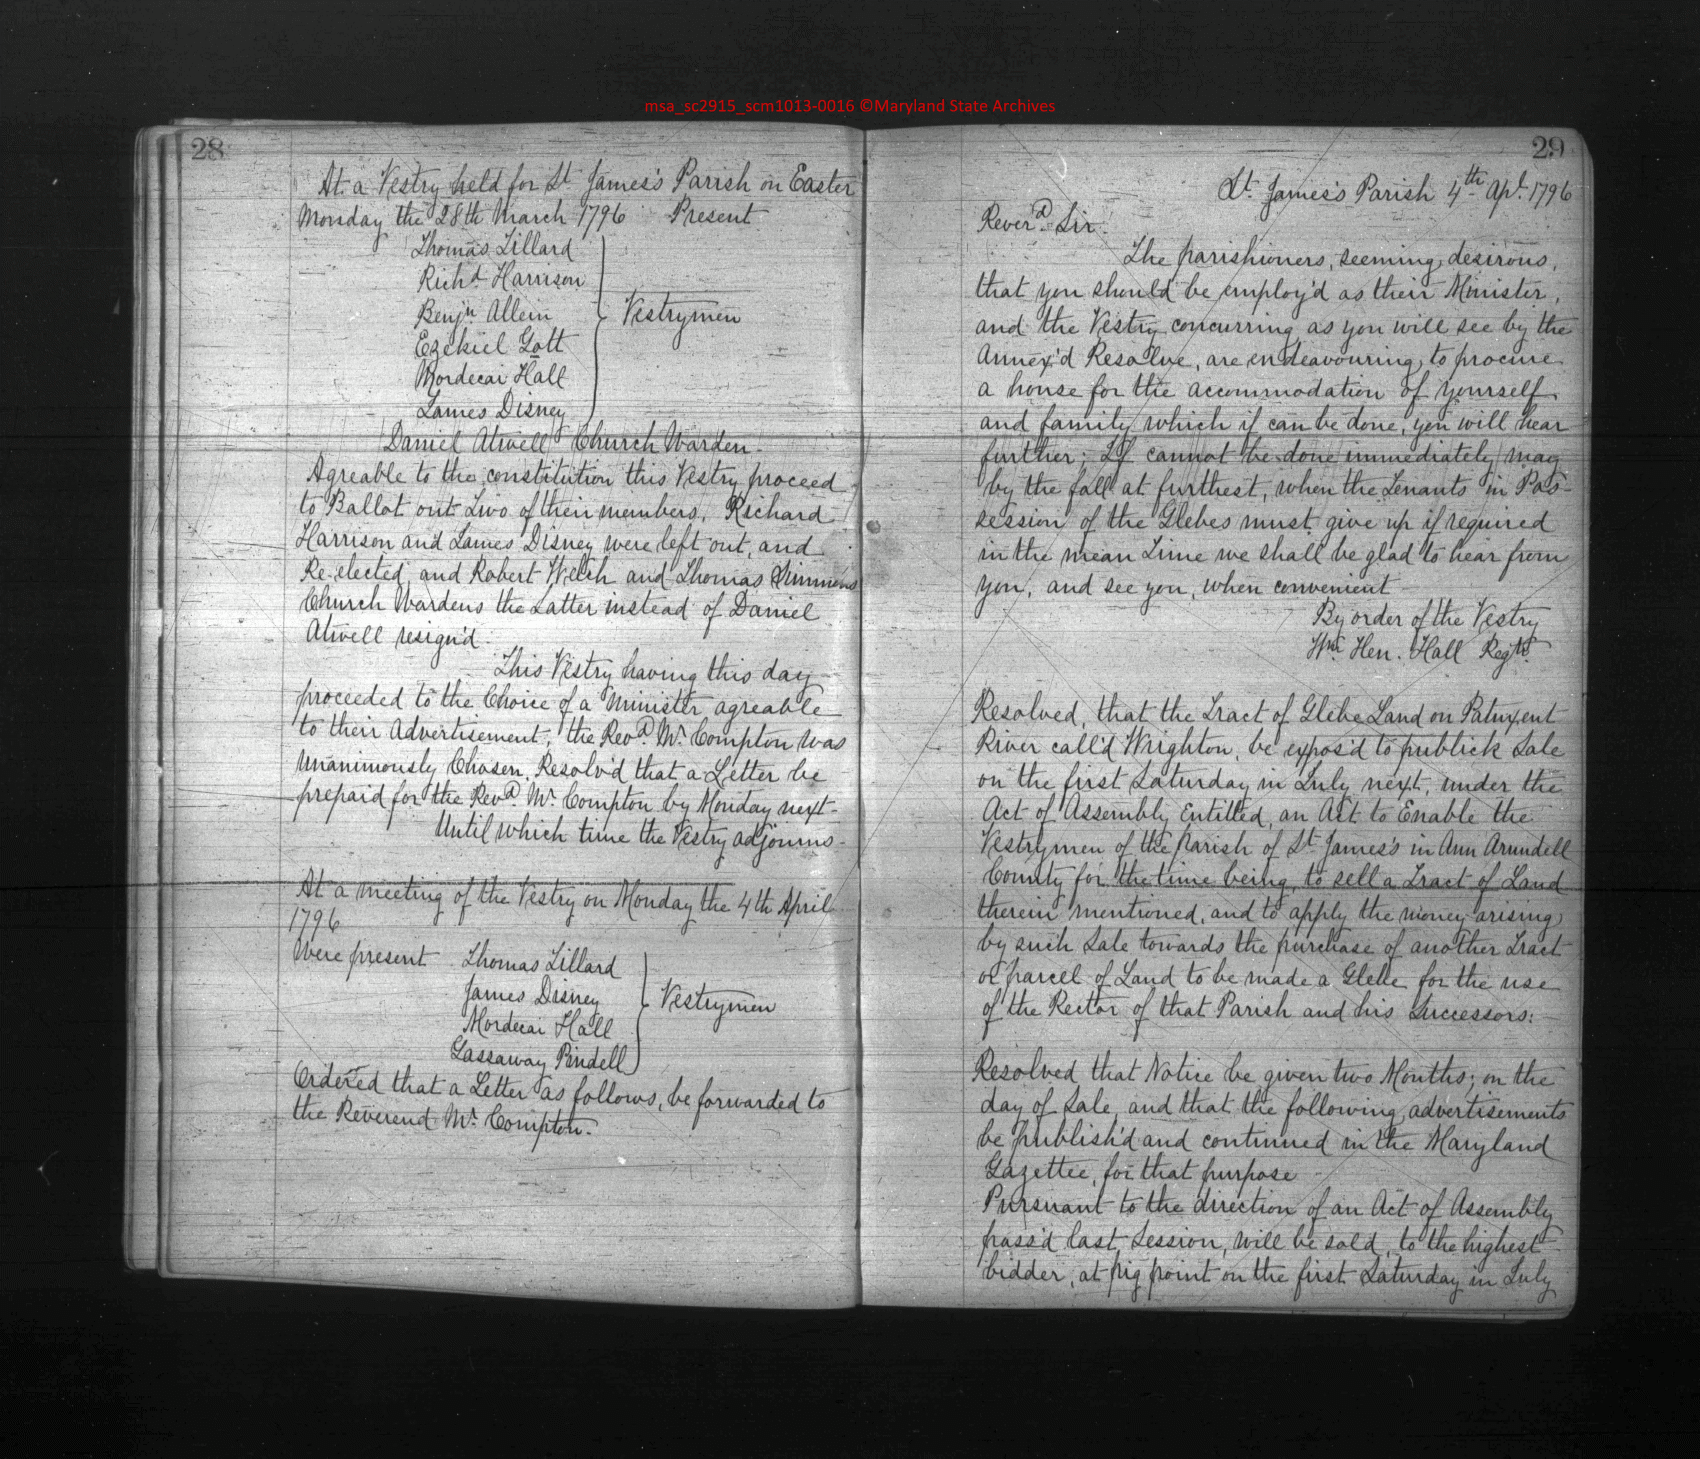 msa_sc2915_scm1013-0016 ©Maryland State Archives
28
At a Vestry held for St James's Parish on Easter
Monday the 28th March 1796 Present
Thomas Tillard
Richd Harrison
Benjn Allein
Vestrymen
Ezekiel Gott
Mordecai Hall
James Disney
Daniel Atwell Church Warden.
Agreable to the constitution this Vestry proceed
to Ballot out Two of their members, Richard
Harrison and James Disney were left out, and
Re-elected and Robert Welch and Thomas Simmons
Church Wardens the Latter instead of Daniel
Atwell resign'd.
This Vestry having this day
proceeded to the Choice of a Minister agreable
to their Advertisement, the Revd. Mr. Compton was
Unanimously Chosen. Resolv'd that a Letter be
prepaid for the Revd. Mr. Compton by Monday next-
Until which time the Vestry adjourns-
At a meeting of the Vestry on Monday the 4th April
1796
Were present Thomas Tillard
James Disney
Vestrymen
Mordecai Hall
Gassaway Pindell
Ordered that a Letter as follows, be forwarded to
the Reverend Mr. Compton.
29
St. James's Parish 4th Apl. 1796
Reverd. Sir.
The parishioners, seeming desirous,
that you should be employ'd as their Minister,
and the Vestry concurring as you will see by the
Annex'd Resolve, are endeavouring to procure
a house for the accommodation of yourself
and family which if can be done, you will hear
further; If cannot be done immediately, may
by the fall at furthest, when the Tenants in Pos-
session of the Glebes must give up if required
in the mean Time we shall be glad to hear from
you, and see you, when convenient
By order of the Vestry
Wm. Hen. Hall Regtr.
Resolved, that the Tract of Glebe Land on Patuxent
River call'd Wrighton, be expos'd to publick Sale
on the first Saturday in July next, under the
Act of Assembly Entitled, an Act to Enable the
Vestrymen of the Parish of St James's in Ann Arundell
County for the time being, to sell a Tract of Land
therein mentioned, and to apply the money arising
by such Sale towards the purchase of another Tract
or parcel of Land to be made a Glebe for the use
of the Rector of that Parish and his Successors:
Resolved that Notice be given two Months; on the
day of Sale, and that the following advertisements
be publish'd and continued in the Maryland
Gazettee, for that purpose
Pursuant to the direction of an Act of Assembly
pass'd last Session, will be sold, to the highest
bidder, at pig point on the first Saturday in July